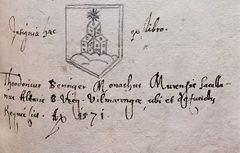 Insignia hec ex libro.
Theodoricus Beninger Monachus Murensis Sacella-
nus Altaris B. Virg. Vilmaringae, ubi et defunctus
1571.